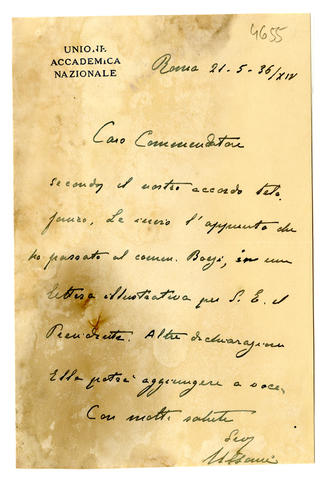 4655
UNIONE
ACCADEMICA
NAZIONALE
Roma 21-5-36/XIV
Caro Commendatore
secondo il nostro accordo tele
fonico, Le invio l'appunto che
ho passato al comm. Bagi, in una
lettera illustrativa per S. E. il
Presidente. Altre dichiarazioni
Ella potrà aggiungere a voce.
Con molti saluti
Suo